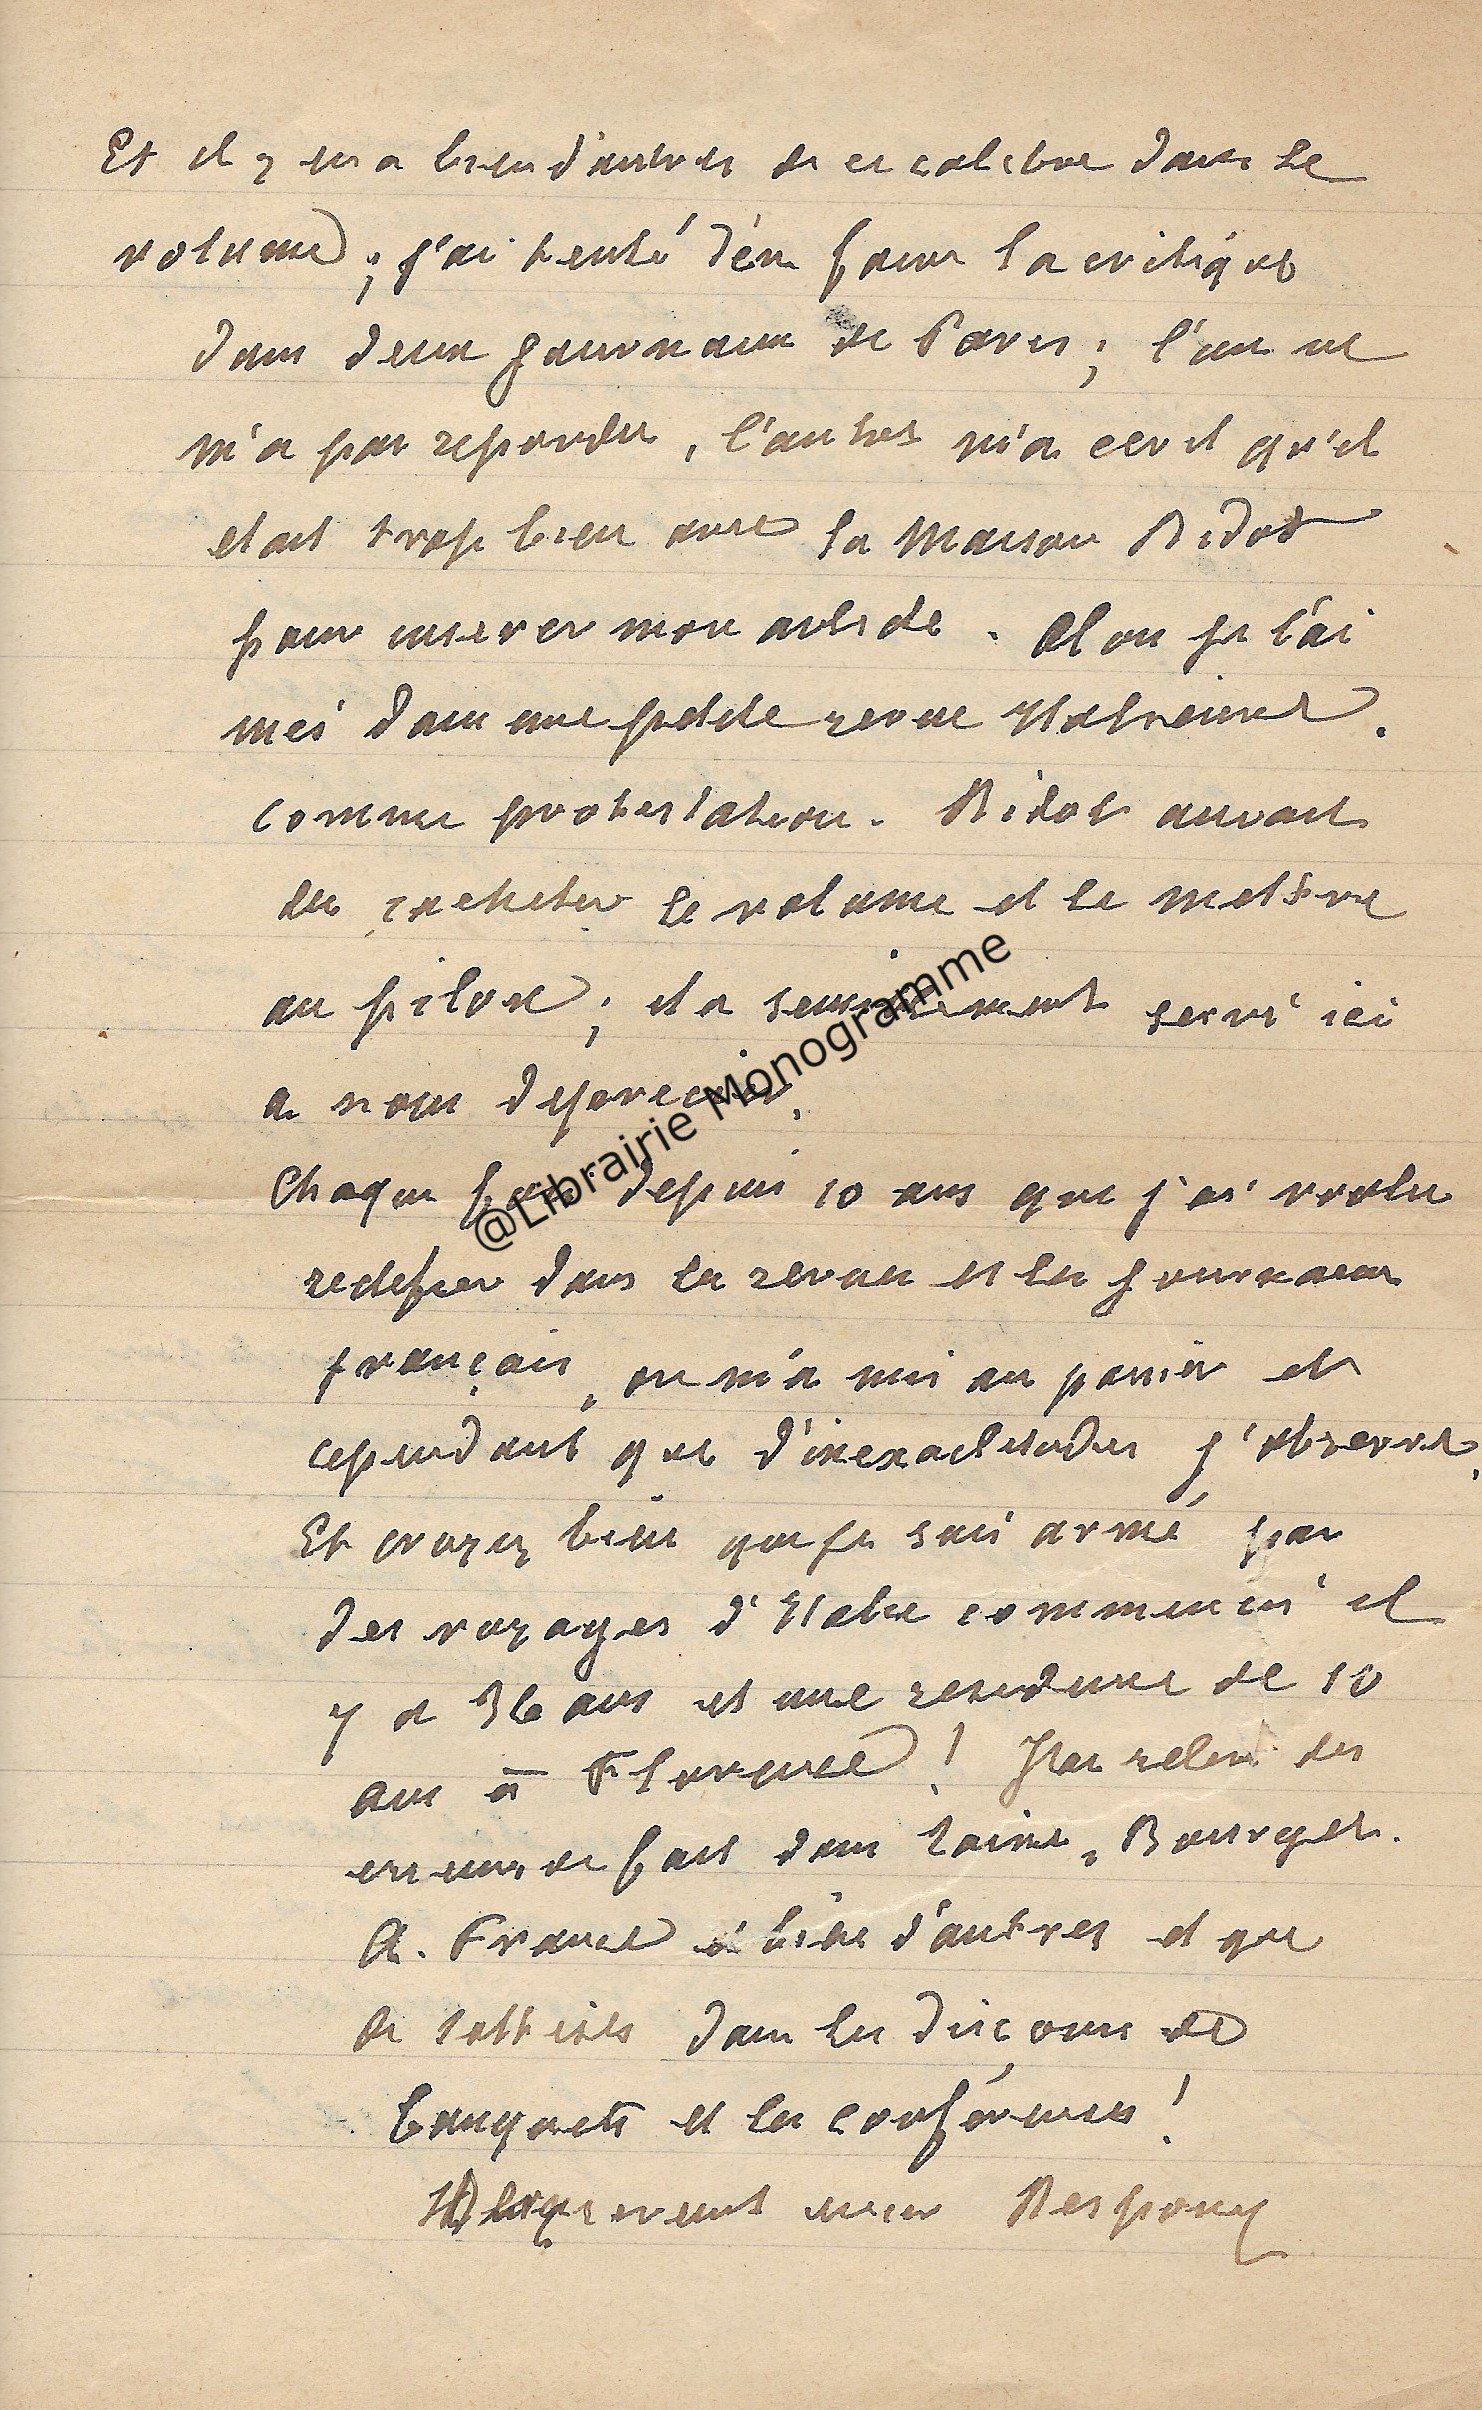 Et il y en a bien d'autres de ce calibre dans le
volume ; j'ai tenté d'en faire la critique
dans deux journaux de Paris ; l'un ne
m'a pas repondu, l'autre m'a ecrit qu'il
etait trop bien avec la maison Didot
pour inserer mon article. Alors je l'ai
mis dans une petite revue Italienne.
comme protestation. Didot aurait
du racheter le volume et le mettre
au pilon ; il a seulement servi ici
a nous deprecier.
Chaque fois depuis 10 ans que j'ai voulu
rectifier dans les revues et les journaux
français, on m'a mis au panier et
cependant que d'inexactitudes j'observe.
Et croyez bien que je suis armé par
des voyages d'Italie commencés il
y a 36 ans et une residence de 10
ans à Florence ! J'ai relevé des
erreurs de fait dans Taine, Bourget.
A. France et bien d'autres et que
de sottises dans les discours de
banquets et les conférences !
@Librairie Monogramme